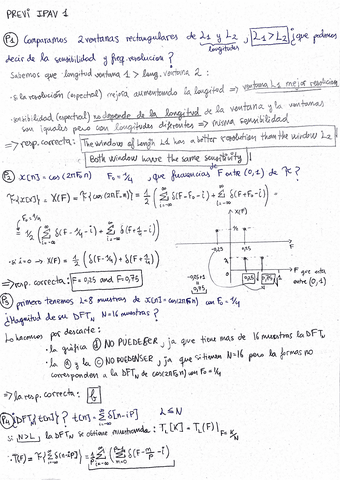 PREVI IPAV 1
P1 Comparamos 2 ventanas rectangulares de L1 y L2, L1 > L2 ¿que podemos
longitudes
decir de la sensibilidad y freq. resolucion?
Sabemos que longitud ventana 1 > long. ventana 2 :
· si la resolución (espectral) mejora aumentando la longitud ⟹ ventana L1 mejor resolucion
· sensibilidad (espectral) no depende de la longitud de la ventana y la ventanas
son iguales pero con longitudes diferentes ⟹ misma sensibilidad
⟹ resp. correcta: The windows of length L1 has a better resolution than the window L2
Both windows have the same sensitivity
P2 x[n] = cos(2πF0n) F0 = 1/4, que frecuencias F entre (0,1) de F?
F{x[n]} = X(F) = F{cos(2πF0n)} = 1/2 (∑ δ(F-F0-i) + ∑ δ(F+F0-i)) =
F0 = 1/4
= 1/2 (∑ δ(F-1/4-i) + ∑ δ(F+1/4-i))
X(F)
-0,25 0,25
F
· si i=0 → X(F) = 1/2 (δ(F-1/4) + δ(F+1/4))
-0,25+1 = 0,75
0,25 0,75
F que esta entre (0,1)
⟹ resp. correcta: F=0,25 and F=0,75
P3 primero tenemos L=8 muestras de x[n] = cos(2πF0n) con F0 = 1/4
¿Magnitud de su DFTN N=16 muestras?
Lo hacemos por descarte:
- la gráfica d NO PUEDE SER, ya que tiene mas de 16 muestras la DFTN
- la a y la c NO PUEDEN SER, ya que si tienen N=16 pero la forma no
corresponden a la DFTN de cos(2πF0n) con F0 = 1/4
⟹ la resp. correcta: b
P4 ¿DFTN{t[n]}? t[n] = ∑ δ[n-iP] L ≤ N
si N>L la DFTN se obtine muestrando: TL[K] = TL(F)|F=K/N
· T(F) = F{∑ δ[n-iP]} = 1/P ∑ (∑ δ(F-m/P-i)